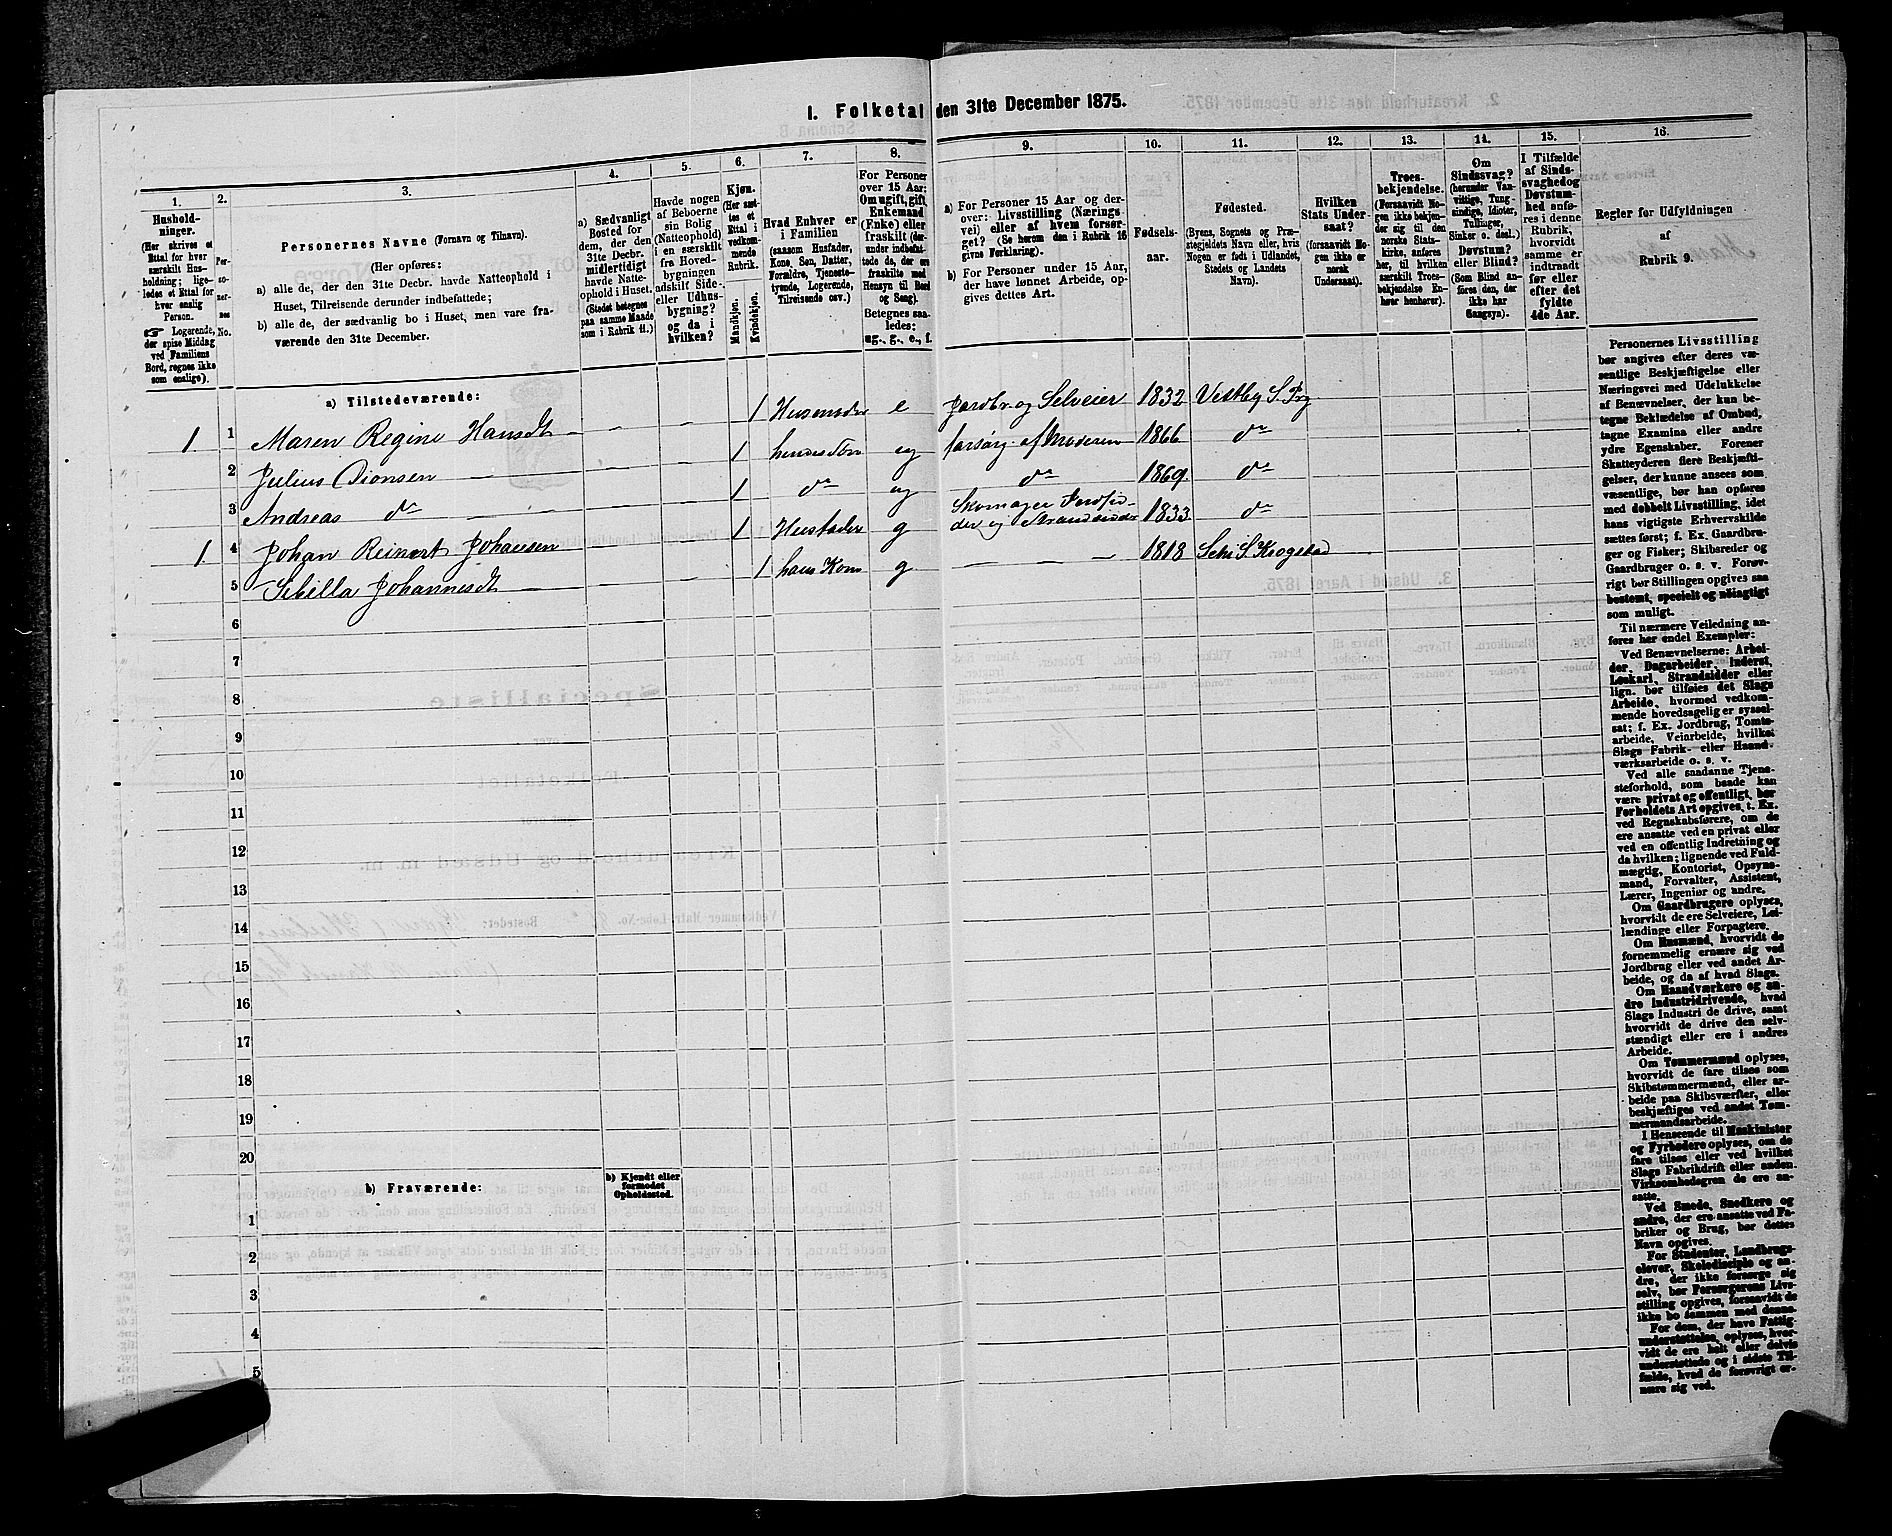 I. Folketal den 31te December 1875.
1. 2. 3. 4. 5. 6. 7. 8. 9. 10. 11. 12. 13. 14. 15. 16.
Hushold-
ninger.
(Her skrives et
Ettal for hver
særskilt Hus-
holdning; lige-
ledes et Ettal for
hver enslig
Person.
☞ Logerende,
der spise Middag
ved Familiens
Bord, regnes ikke
som enslige).
Per-
so-
ner-
nes
No.
Personernes Navne (Fornavn og Tilnavn).
(Her opføres:
a) alle de, der den 31te Decbr. havde Natteophold i
Huset, Tilreisende derunder indbefattede;
b) alle de, der sædvanlig bo i Huset, men vare fra-
værende den 31te December.
a) Sædvanligt
Bosted for
dem, der den
31te Decbr.
midlertidigt
havde Natte-
ophold i Huset.
(Stedet betegnes
paa samme Maade
som i Rubrik 11.)
Havde nogen
af Beboerne
sin Bolig
(Natteophold)
i en særskilt
fra Hoved-
bygningen
adskilt Side-
eller Udhus-
bygning?
og da i
hvilken?
Kjøn.
(Her sæt-
tes et
Ettal i
vedkom-
mende
Rubrik.
Mandkjøn.
Kvindekjøn.
Hvad Enhver er
i Familien
(saasom Husfader,
Kone, Søn, Datter,
Forældre, Tjeneste-
tyende, Logerende,
Tilreisende osv.)
For Personer
over 15 Aar:
Om ugift, gift,
Enkemand
(Enke) eller
fraskilt (der-
under indbefat-
tede de, der ere
fraskilte med
Hensyn til Bord
og Seng).
Betegnes saa-
ledes:
ug., g., e., f.
a) For Personer 15 Aar og der-
over: Livsstilling (Nærings-
vei) eller af hvem forsør-
get? (Se herom den i Rubrik 16
givne Forklaring).
b) For Personer under 15 Aar,
der have lønnet Arbeide, op-
gives dettes Art.
Fødsels-
aar.
Fødested.
(Byens, Sognets og Præ-
stegjeldets Navn eller, hvis
Nogen er født i Udlandet,
Stedets og Landets
Navn).
Hvilken
Stats Under-
saat?
(forsaavidt No-
gen ikke er
norsk
Undersaat).
Troes-
bekjendelse.
(Forsaavidt No-
gen ikke bekjen-
der sig til den
norske Stats-
kirke, anføres
her, til hvilken
særskilt Troes-
bekjendelse En-
hver henhører).
Om
Sindssvag?
(herunder Van-
vittige, Tung-
sindige, Idioter,
Tullinger,
Sinker o. desl.)
Døvstum?
eller Blind?
(Som Blind an-
føres den, der
ikke har
Gangsyn).
I Tilfælde
af Sinds-
svaghed og
Døvstum-
hed anfø-
res i denne
Rubrik,
hvorvidt
samme er
indtraadt
før eller
efter det
fyldte
4de Aar.
Regler for Udfyldningen
af
Rubrik 9.
a) Tilstedeværende:
1 1 Maren Regine Hansdt 1 Husmoder e Jordbr. og Selveier 1832 Vestby S. Prg
2 Julius Dionsen 1 hendes Søn ug forsørg. af Moderen 1866 do
3 Andreas do 1 do ug do 1869 do
1 4 Johan Reinert Johansen 1 Husfader g Skomager
der og Strandsidder 1833 do
5 Sibilla Johannesdt 1 hans Kone g 1818 S. Krogstad
6
7
8
9
10
11
12
13
14
15
16
17
18
19
20
b) Fraværende:
b) Kjendt eller
formodet
Opholdssted.
1
2
3
4
5
Personernes Livsstilling
bør angives efter deres væ-
sentlige Beskjæftigelse eller
Næringsvei med Udelukkelse
af Benævnelser, der kun be-
tegne Beklædelse af Ombud,
tagne Examina eller andre
ydre Egenskaber. Forener
Skatteyderen flere Beskjæfti-
gelser, der kunne ansees som
væsentlige, bør han opføres
med dobbelt Livsstilling, idet
hans vigtigste Erhvervskilde
sættes først; f. Ex. Gaardbru-
ger og Fisker; Skibsreder og
Gaardbruger o. s. v. Forøv-
rigt bør Stillingen opgives saa
bestemt, specielt og nøiagtigt
som muligt.
Til nærmere Veiledning an-
føres her endel Exempler:
Ved Benævnelserne: Arbei-
der, Dagarbeider, Inderst,
Løskarl, Strandsidder eller
lign. bør tilføies det Slags
Arbeide, hvormed vedkom-
mende hovedsagelig er syssel-
sat; f. Ex. Jordbrug, Tomte-
arbeide, Veiarbeide, hvilket
Slags Fabrik- eller Haand-
værksarbeide o. s. v.
Ved alle saadanne Tjene-
steforhold, som baade kan
være privat og offentligt, bør
Forholdets Art opgives, t. Ex.
ved Regnskabsførere, om de
ere ansatte ved en privat eller
ved en offentlig Indretning og
da hvilken; lignende ved Fuld-
mægtig, Kontorist, Opsyns-
mand, Forvalter, Assistent,
Lærer, Ingeniør og andre.
Om Gaardbrugere oplyses,
hvorvidt de ere Selveiere, Lei-
lændinge eller Forpagtere.
Om Husmænd, hvorvidt de
fornemmelig ernære sig ved
Jordbrug eller ved andet Ar-
beide, og da af hvad Slags.
Om Haandværkere og an-
dre Industridrivende, hvad
Slags Industri de drive, samt
hvorvidt de drive den selv-
stændigt eller ere i andres
Arbeide.
Om Tømmermænd oplyses,
hvorvidt de fare tilsøs som
Skibstømmermænd, eller ar-
beide paa Skibsværfter, eller
beskjæftiges ved andet Tøm-
mermandsarbeide.
I Henseende til Maskinister
og Fyrbødere oplyses, om de
fare tilsøs eller ved hvilket
Slags Fabrikdrift eller anden
Virksomhedsgren de ere an-
satte.
Ved Smede, Snedkere og
andre, der ere ansatte ved Fa-
briker og Brug, bør dettes
Navn opgives.
For Studenter, Landbrugs-
elever, Skoledisciple og an-
dre, der ikke forsørge sig
selv, bør Forsørgerens Livs-
stilling opgives, forsaavidt de
ikke bo sammen med denne.
For dem, der have Fattig-
understøttelse, oplyses, hvor-
vidt de ere helt eller delvis
understøttede og i sidste Til-
fælde, hvad de forøvrigt er-
nære sig ved.